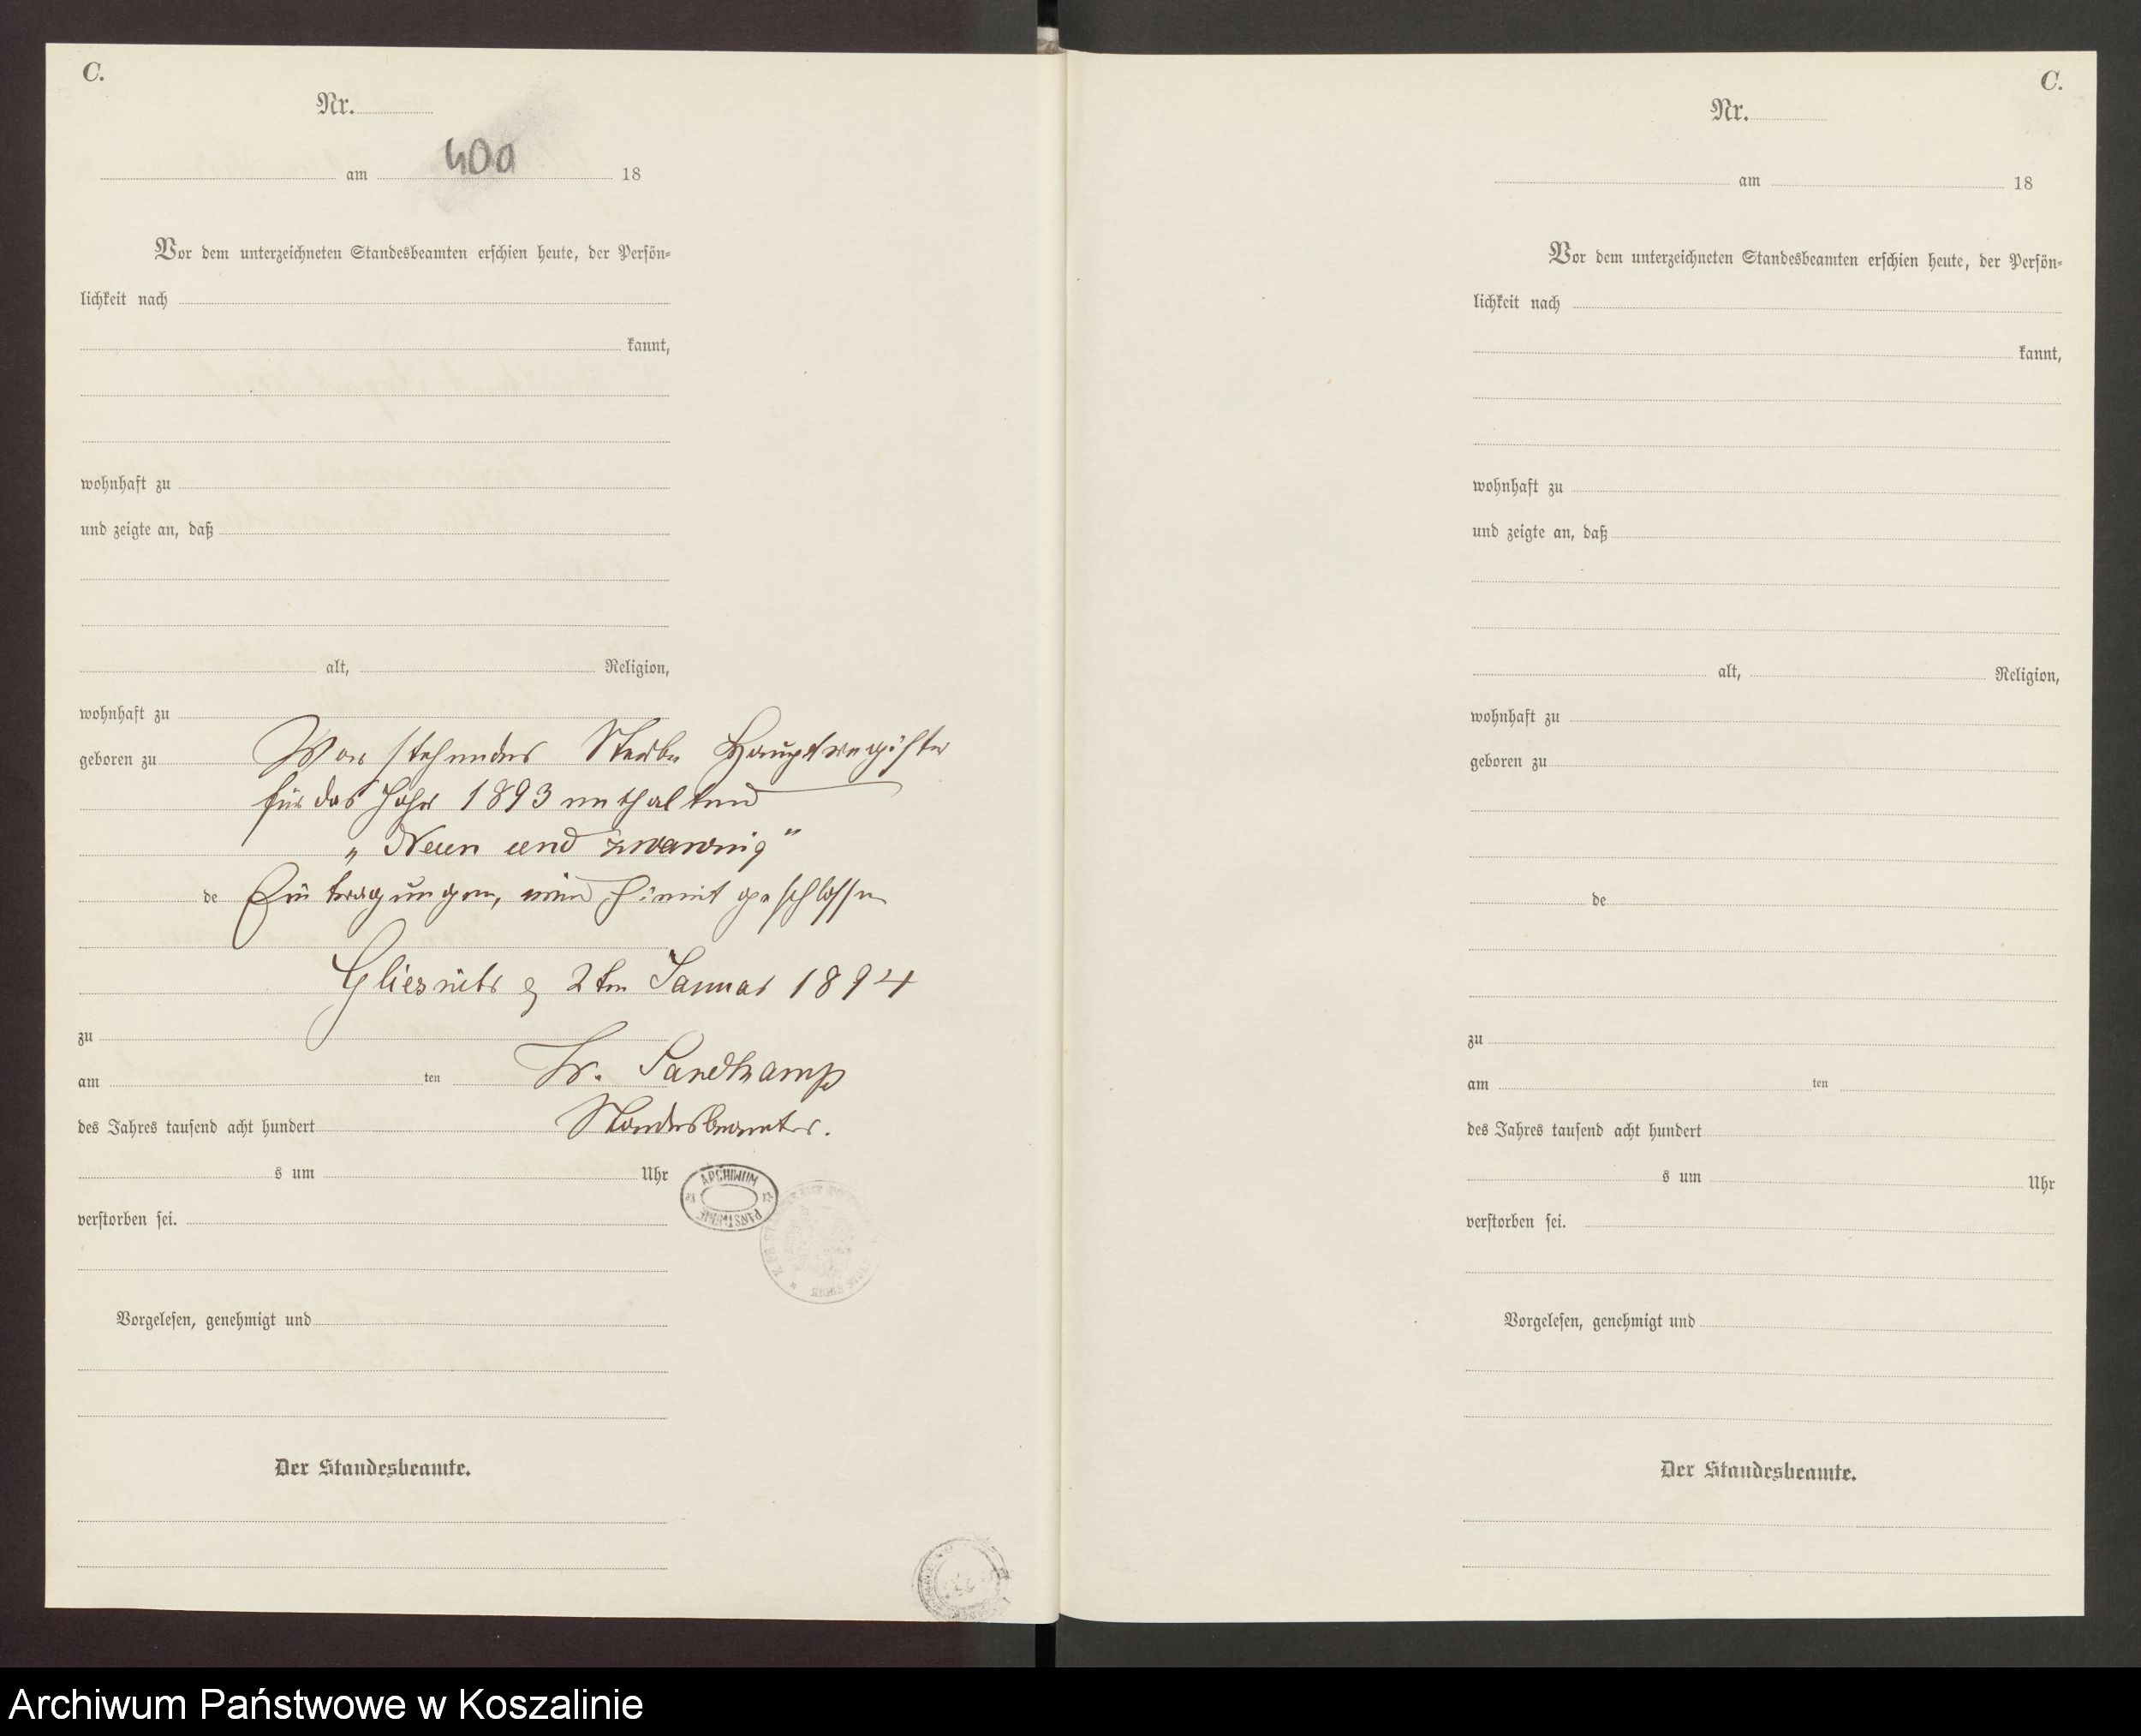 C.
Nr.
400
am 18
Vor dem unterzeichneten Standesbeamten erschien heute, der Persön-
lichkeit nach
kannt,
wohnhaft zu
und zeigte an, daß
alt, Religion,
wohnhaft zu
geboren zu
Vorstehendes Sterbe Hauptregister
für das Jahr 1893 enthaltend
„Neun und zwanzig"
de
Eintragungen, wird hiermit geschlossen
den 2ten Januar 1894
zu
am ten
Fr. Sandkamp
des Jahres tausend acht hundert
Standesbeamter.
s um Uhr
verstorben sei.
ARCHIWUM
PAŃSTWOWE
Vorgelesen, genehmigt und
Der Standesbeamte.
C.
Nr.
am 18
Vor dem unterzeichneten Standesbeamten erschien heute, der Persön-
lichkeit nach
kannt,
wohnhaft zu
und zeigte an, daß
alt, Religion,
wohnhaft zu
geboren zu
de
zu
am ten
des Jahres tausend acht hundert
s um Uhr
verstorben sei.
Vorgelesen, genehmigt und
Der Standesbeamte.
Archiwum Państwowe w Koszalinie